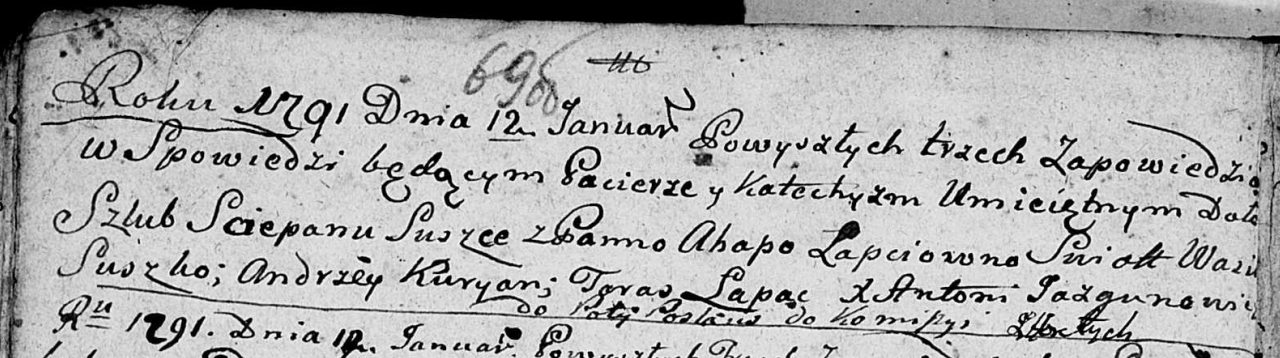 6960
Roku 1791 Dnia 12 Januar Powyszłych trzech Zapowiedzia
w Spowiedzi będącym Pacierze y Katechyzm Umieiętnym Dałe
Szlub Sciepanu Suszce z Panno Ahapo Łapciowno Swiatt Wazil
Suszko; Andrzey Kuryan; Taras Łapac X Antoni Jazgunowic
do Komissyi
Ru 1791. Dnia 12 Januar. Powyszłych Trzech